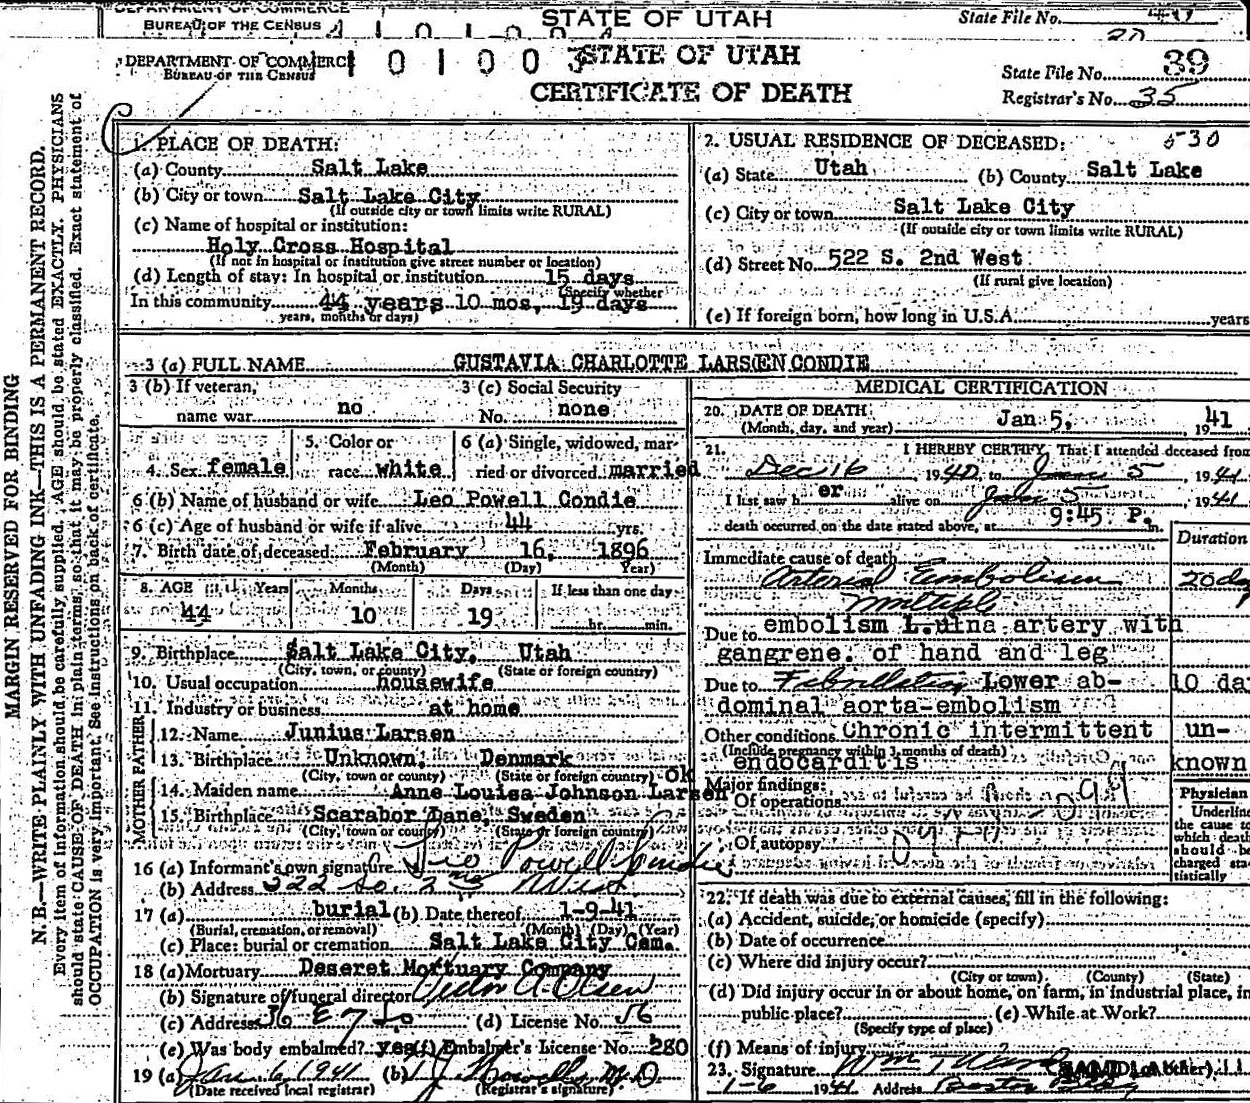 DEPARTMENT OF COMMERCE
BUREAU OF THE CENSUS
STATE OF UTAH
State File No.
DEPARTMENT OF COMMERCE
BUREAU OF THE CENSUS
1 0 1 0 0 3
STATE OF UTAH
CERTIFICATE OF DEATH
State File No. 39
Registrar's No. 35
MARGIN RESERVED FOR BINDING
N. B.—WRITE PLAINLY WITH UNFADING INK—THIS IS A PERMANENT RECORD.
Every item of information should be carefully supplied. AGE should be stated EXACTLY. PHYSICIANS
should state CAUSE OF DEATH in plain terms, so that it may be properly classified. Exact statement of
OCCUPATION is very important. See instructions on back of certificate.
1. PLACE OF DEATH:
(a) County Salt Lake
(b) City or town Salt Lake City
(If outside city or town limits write RURAL)
(c) Name of hospital or institution:
Holy Cross Hospital
(If not in hospital or institution give street number or location)
(d) Length of stay: In hospital or institution 15 days
(Specify whether
In this community 44 years 10 mos, 19 days
years, months or days)
2. USUAL RESIDENCE OF DECEASED:
(a) State Utah (b) County Salt Lake
(c) City or town Salt Lake City
(If outside city or town limits write RURAL)
(d) Street No. 522 S. 2nd West
(If rural give location)
(e) If foreign born, how long in U.S.A. years
3 (a) FULL NAME GUSTAVIA CHARLOTTE LARSEN CONDIE
3 (b) If veteran, name war no
3 (c) Social Security No. none
4. Sex female
5. Color or race white
6 (a) Single, widowed, married or divorced married
6 (b) Name of husband or wife Leo Powell Condie
6 (c) Age of husband or wife if alive 44 yrs.
7. Birth date of deceased February 16, 1896
(Month) (Day) Year)
8. AGE Years Months Days If less than one day
44 10 19 hr. min.
9. Birthplace Salt Lake City, Utah
(City, town, or county) (State or foreign country)
10. Usual occupation housewife
11. Industry or business at home
FATHER
12. Name Junius Larsen
13. Birthplace Unknown, Denmark
(City, town or county) (State or foreign country) ok
MOTHER
14. Maiden name Anne Louisa Johnson Larsen
15. Birthplace Scarabor Lane, Sweden
(City, town or county) (State or foreign country)
16 (a) Informant's own signature Leo Powell Condie
(b) Address 522 So. 2nd West
17 (a) burial (b) Date thereof 1-9-41
(Burial, cremation, or removal) (Month) (Day) (Year)
(c) Place: burial or cremation Salt Lake City Cem.
18 (a) Mortuary Deseret Mortuary Company
(b) Signature of funeral director Victor A. Olsen
(c) Address 36 E 7 So (d) License No. 56
(e) Was body embalmed? yes (f) Embalmer's License No. 280
19 (a) Jan 6, 1941 (b) M D
(Date received local registrar) (Registrar's signature)
MEDICAL CERTIFICATION
20. DATE OF DEATH Jan 5, 1941
(Month, day, and year)
21. I HEREBY CERTIFY, That I attended deceased from
Dec 16, 1940, to Jan 5, 1941
I last saw her alive on Jan 5, 1941
death occurred on the date stated above, at 9:45 P. m.
Duration
Immediate cause of death
Arterial Embolism 20 da
multiple
Due to embolism L. ulna artery with
gangrene. of hand and leg
Due to Fibrillation Lower ab- 10 da
dominal aorta-embolism
Other conditions Chronic intermittent un-
(Include pregnancy within 3 months of death)
endocarditis known
Major findings:
Of operations
Of autopsy
Physician
Underline
the cause to
which death
should be
charged sta-
tistically
22. If death was due to external causes, fill in the following:
(a) Accident, suicide, or homicide (specify)
(b) Date of occurrence
(c) Where did injury occur?
(City or town) (County) (State)
(d) Did injury occur in or about home, on farm, in industrial place, in
public place? (e) While at Work?
(Specify type of place)
(f) Means of injury
23. Signature (M.D. or other)
1-6 1941 Address Boston Bldg